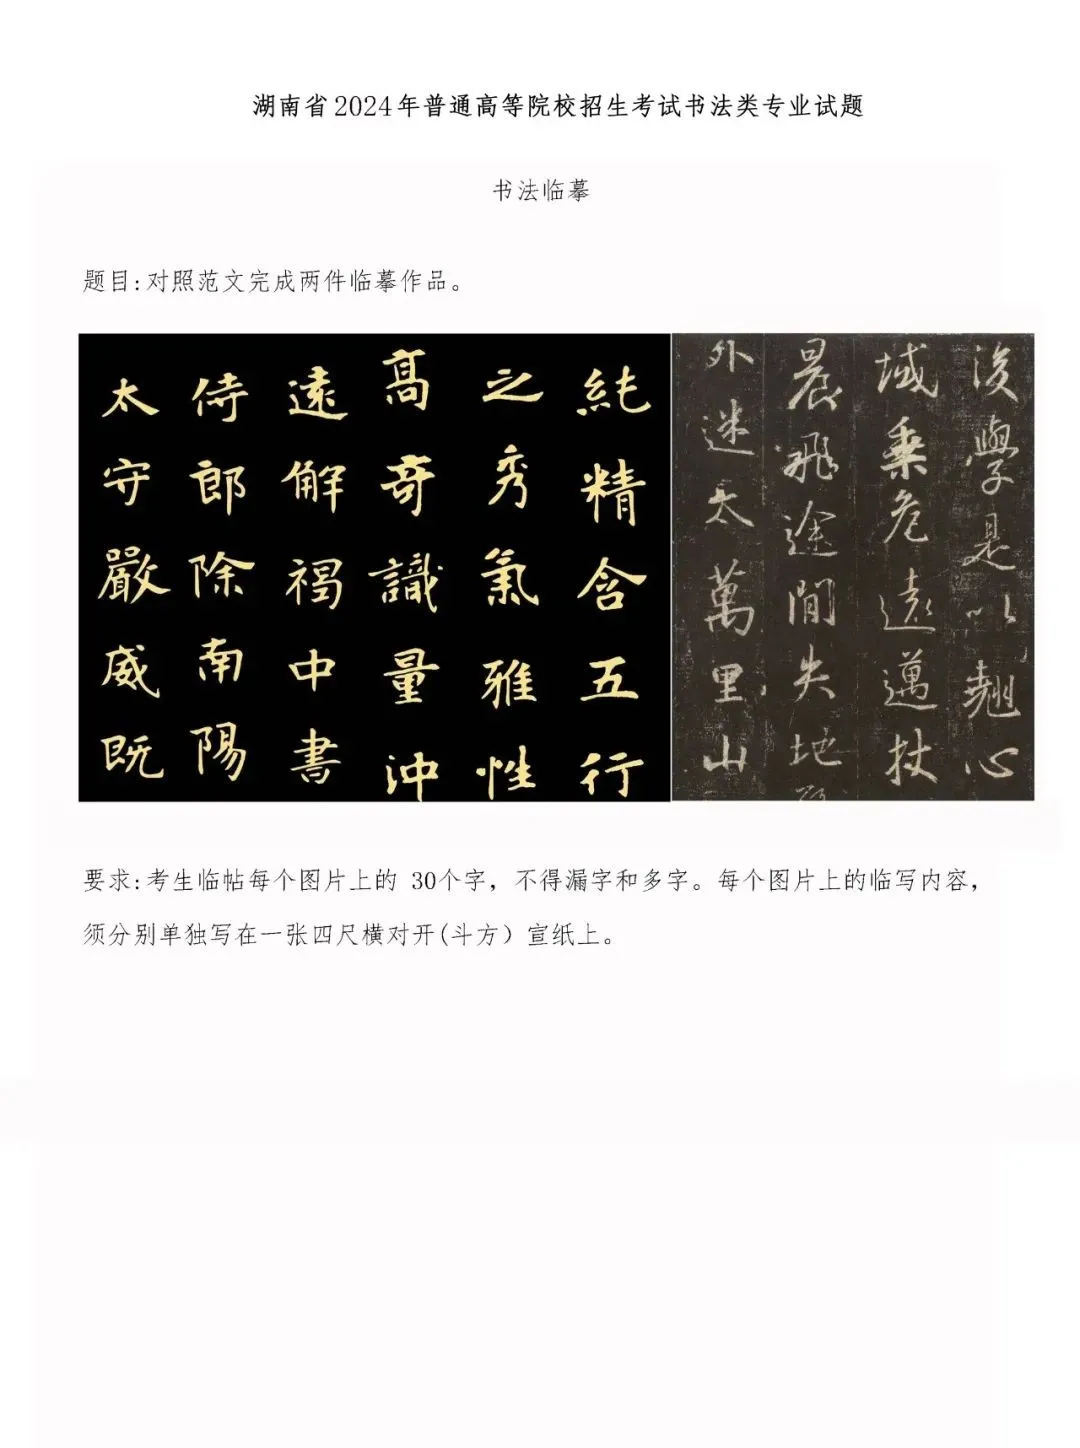 湖南省2024年普通高等院校招生考试书法类专业试题
书法临摹
题目:对照范文完成两件临摹作品。
純精含五行
之秀氣雅性
高奇識量沖
遠解褐中書
侍郎除南陽
太守嚴威既
後學是以翹心
域乘危遠邁杖
晨飛途間失地
外迷天萬里山
要求:考生临帖每个图片上的 30个字，不得漏字和多字。每个图片上的临写内容，
须分别单独写在一张四尺横对开(斗方）宣纸上。